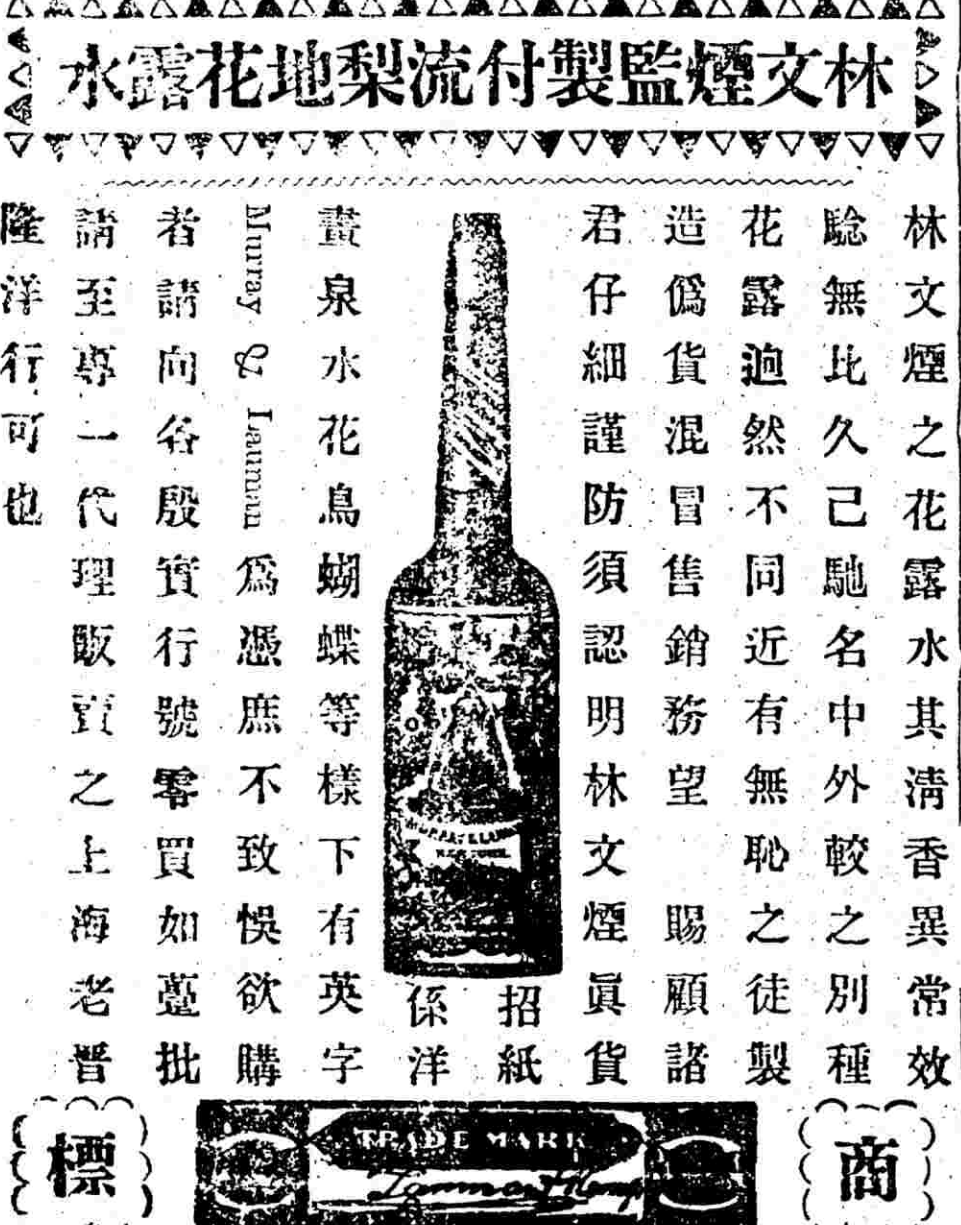 林文煙監製付流梨地花露水
林文煙之花露水其清香異常效
驗無比久己馳名中外較之別種
花露逈然不同近有無恥之徒製
造僞貨混冒售銷務望 賜顧諸
君仔細謹防須認明林文煙眞貨
招紙
係洋
畫泉水花鳥蝴蝶等樣下有英字
Murray & Lanman 爲憑庶不致悞欲購
者請向各殷實行號零買如躉批
請至專一代理販賣之上海老晋
隆洋行可也
商
標
TRADE MARK
Lanman & Kemp